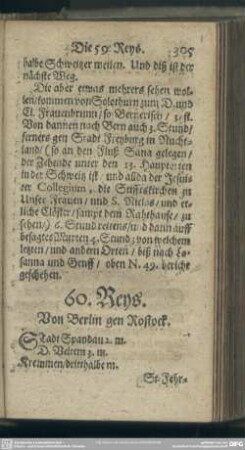 Die 59. Reys. 305
halbe Schweitzer meilen. Und diß ist der
nächste Weg.
Die aber etwas mehrers sehen wol-
len/kommen von Solothurn zum D. und
Cl. Frauenbrunn/ so Bernerisch/ 3. st.
Von dannen nach Bern auch 3. Stund/
ferners gen Stadt Freyburg in Nücht-
land/ (so an den Fluß Sana gelegen/
der Zehende unter den 13. Hauptorten
in der Schweiz ist und allda der Jesui-
ter Collegium, die Stifftskirchen zu
Unser Frauen/ und S. Niclas/ und et-
liche Clöster/ sampt dem Rahthause/ zu
sehen/) 6. Stund reitens/ und dann auff
besagtes Murten 4. Stund; von welchem
letzten/ und andern Orten/ biß nach Lo-
sanna und Genff/ oben N. 49. bericht
geschehen.
60. Reys.
Von Berlin gen Rostock.
Stadt Spandau 2. m.
D. Veltem 3. m.
Kremmen/ dritthalbe m.
St. Fehr-